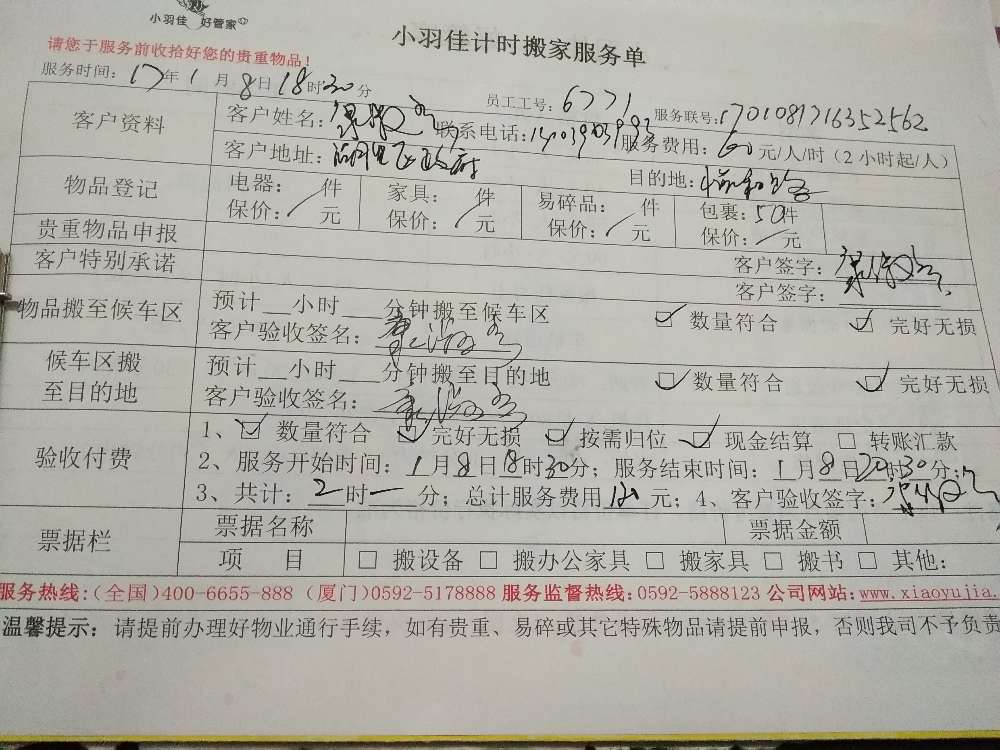 小羽佳 好管家
小羽佳计时搬家服务单
请您于服务前收拾好您的贵重物品!
服务时间: 17年1月8日18时30分
员工工号: 6771
服务联号: 1701081716352562
客户资料
客户姓名:
联系电话:
服务费用: 60元/人/时(2小时起/人)
客户地址:
目的地:
物品登记
电器: / 件 家具: 件 易碎品: 件 包裹: 50件
保价: / 元 保价: / 元 保价: / 元 保价: / 元
贵重物品申报
客户签字:
客户特别承诺
客户签字:
物品搬至候车区
预计__小时___分钟搬至候车区
☑ 数量符合 ☑ 完好无损
客户验收签名:
候车区搬至目的地
预计__小时___分钟搬至目的地
☑ 数量符合 ☑ 完好无损
客户验收签名:
验收付费
1、☑ 数量符合 ☑ 完好无损 ☑ 按需归位 ☑ 现金结算 □ 转账汇款
2、服务开始时间: 1月8日18时30分; 服务结束时间: 1月8日20时30分;
3、共计: 2时一分; 总计服务费用 120 元; 4、客户验收签字:
票据栏
票据名称 票据金额
项 目 □ 搬设备 □ 搬办公家具 □ 搬家具 □ 搬书 □ 其他:
服务热线:(全国)400-6655-888 (厦门)0592-5178888 服务监督热线:0592-5888123 公司网站:www.xiaoyujia.
温馨提示: 请提前办理好物业通行手续,如有贵重、易碎或其它特殊物品请提前申报,否则我司不予负责